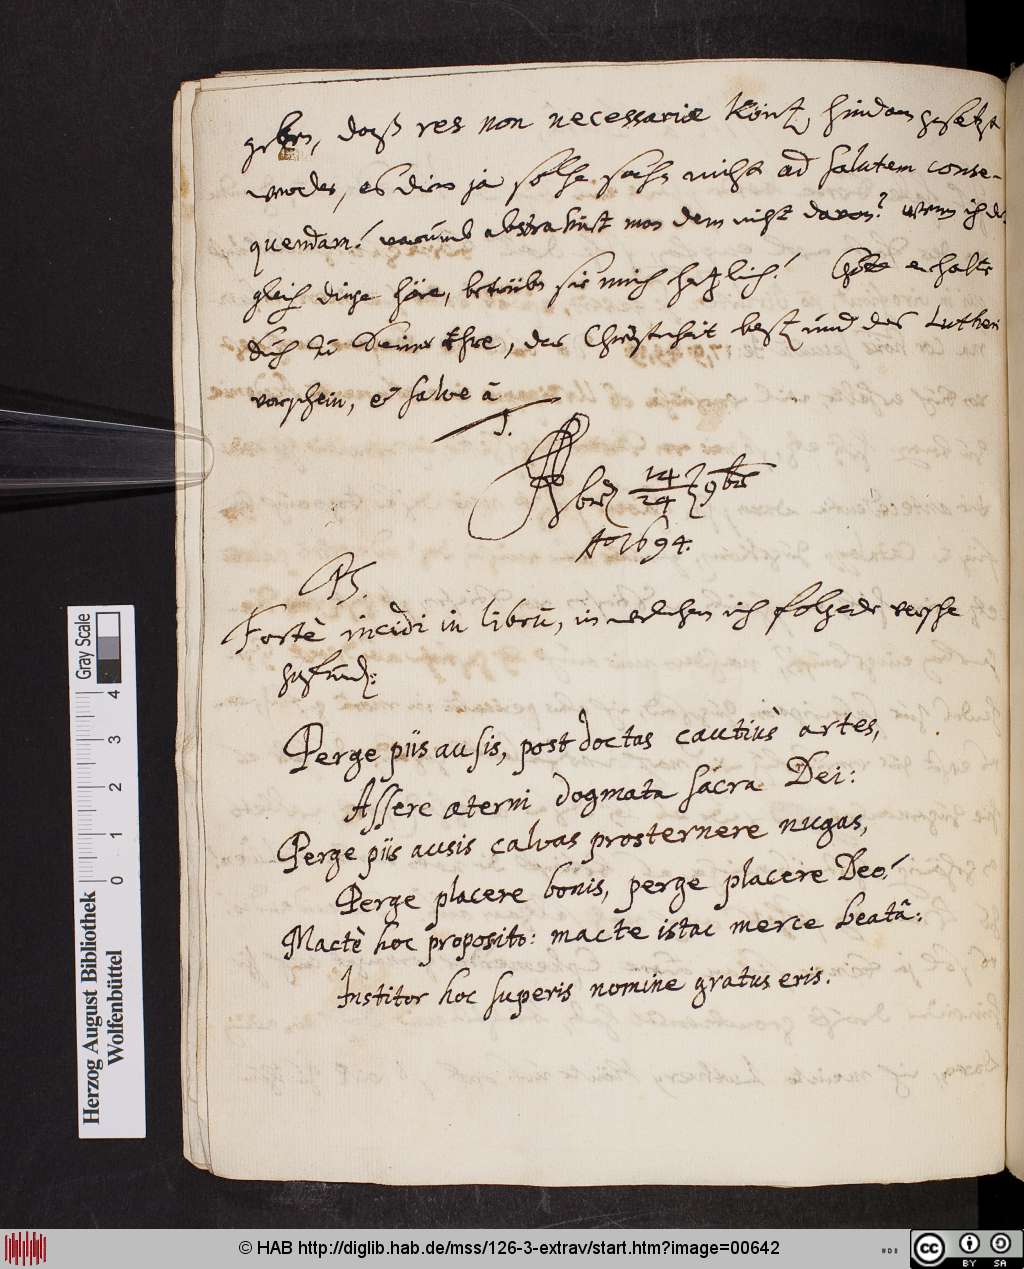 geben, daß res non necessariæ könt, hindan gesetzt
werden, es dien ja solche sachen nicht ad salutem conse-
quendam! warumb abstrahirt man dem nicht davon? wenn ich der
gleich dinge höre, betrüben sie mich hertzlich! Gott erhalte
dich zu seiner Ehre, der Christenheit best, und des Lutheri
, et salve â
T.
14/24 9bris
Ao 1694.
PS.
Fortè incidi in librū, in welchen ich folgende versche
gefund:
Perge piis ausis, post doctas cautiùs artes,
Assere æterni dogmata sacra Dei:
Perge piis ausis calvas prosternere nugas,
Perge placere bonis, perge placere Deo!
Mactè hoc proposito: macte istac merce beatâ:
Institor hoc superis nomine gratus eris.
Herzog August Bibliothek
Wolfenbüttel
Gray Scale
0 1 2 3 4
© HAB http://diglib.hab.de/mss/126-3-extrav/start.htm?image=00642
cc BY SA